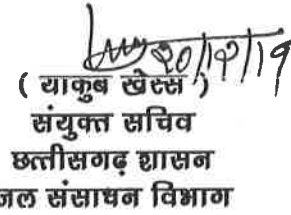 20/12/19
( याकुब खेस्स )
संयुक्त सचिव
छत्तीसगढ़ शासन
जल संसाधन विभाग